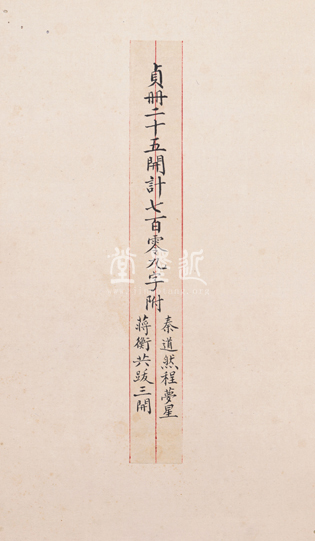 貞冊二十五開計七百零九字附
秦道然程夢星
蔣衡共跋三開